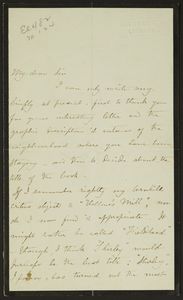 My dear Sir
I can only write very
briefly at present, first to thank you
for your interesting letter and the
graphic description it contained of the
neighbourhood where you have been
staying, and then to decide about the
title of the book.
If I remember rightly, my Cornhill
critics objected to "Hollows Mill", nor
do I now find it appropriate. It
might rather be called "Fieldhead"
though I think "Shirley" would
perhaps be the best title; "Shirley"
I fancy, has turned out the most